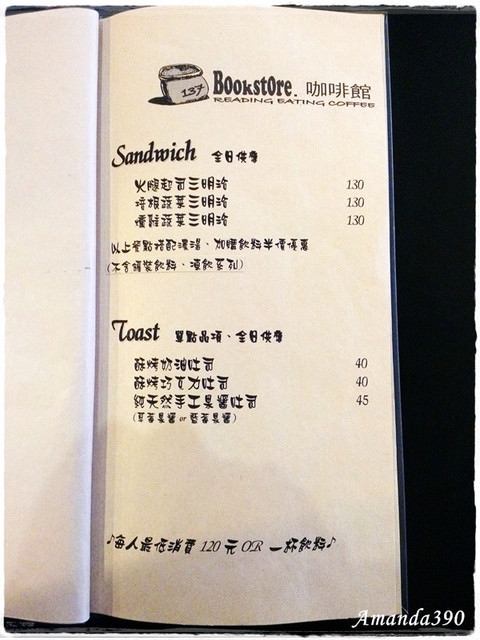 137
Bookstore. 咖啡館
READING EATING COFFEE
Sandwich 全日供應
火腿起司三明治 130
培根蔬菜三明治 130
燻雞蔬菜三明治 130
以上餐點搭配濃湯、加購飲料半價優惠
(不含罐裝飲料、凍飲系列)
Toast 單點品項、全日供應
酥烤奶油吐司 40
酥烤巧克力吐司 40
純天然手工果醬吐司 45
(草莓果醬 or 藍莓果醬)
♪每人最低消費 120 元 OR 一杯飲料♪
Amanda390